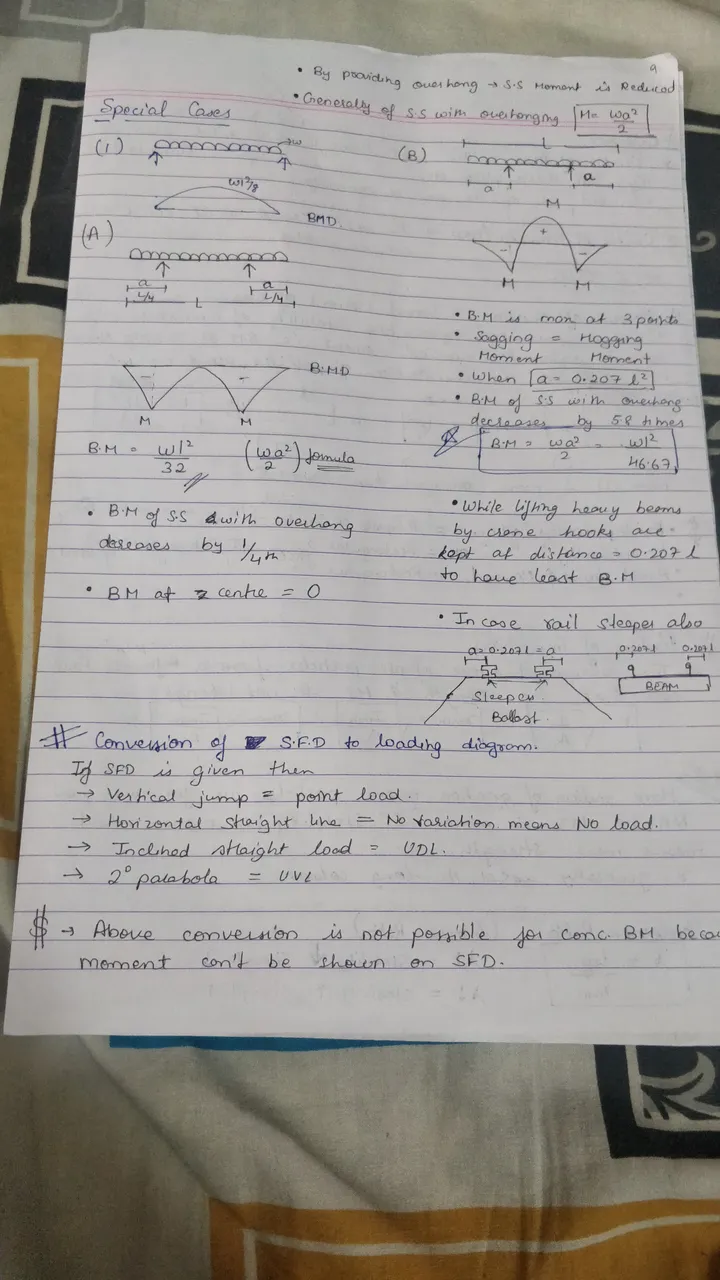 9
• By providing overhang → S.S Moment is Reduced
• Generally of S.S with overhanging M = wa²/2
Special Cases
(1)
w
wl²/8
BMD
(A)
a a
L/4 L/4
L
B.MD
M M
B.M = wl²/32 (wa²/2) formula
• B.M of S.S with overhang
decreases by 1/4th
• BM at centre = 0
(B)
L
a a
M
- + -
M M
• B.M is max at 3 points
• Sagging = Hogging
Moment Moment
• When a = 0.207 l²
• B.M of S.S with overhang
decreases by 5.8 times
B.M = wa²/2 = wl²/46.67
• While lifting heavy beams
by crane hooks are
kept at distance = 0.207 l
to have least B.M
• In case rail sleeper also
a = 0.207 l = a 0.207 l 0.207 l
Sleeper BEAM
Ballast.
# Conversion of S.F.D to loading diagram.
If SFD is given then
→ Vertical jump = point load.
→ Horizontal straight line = No variation means No load.
→ Inclined straight load = UDL.
→ 2° parabola = UVL
$ → Above conversion is not possible for conc. BM beca
moment can't be shown on SFD.